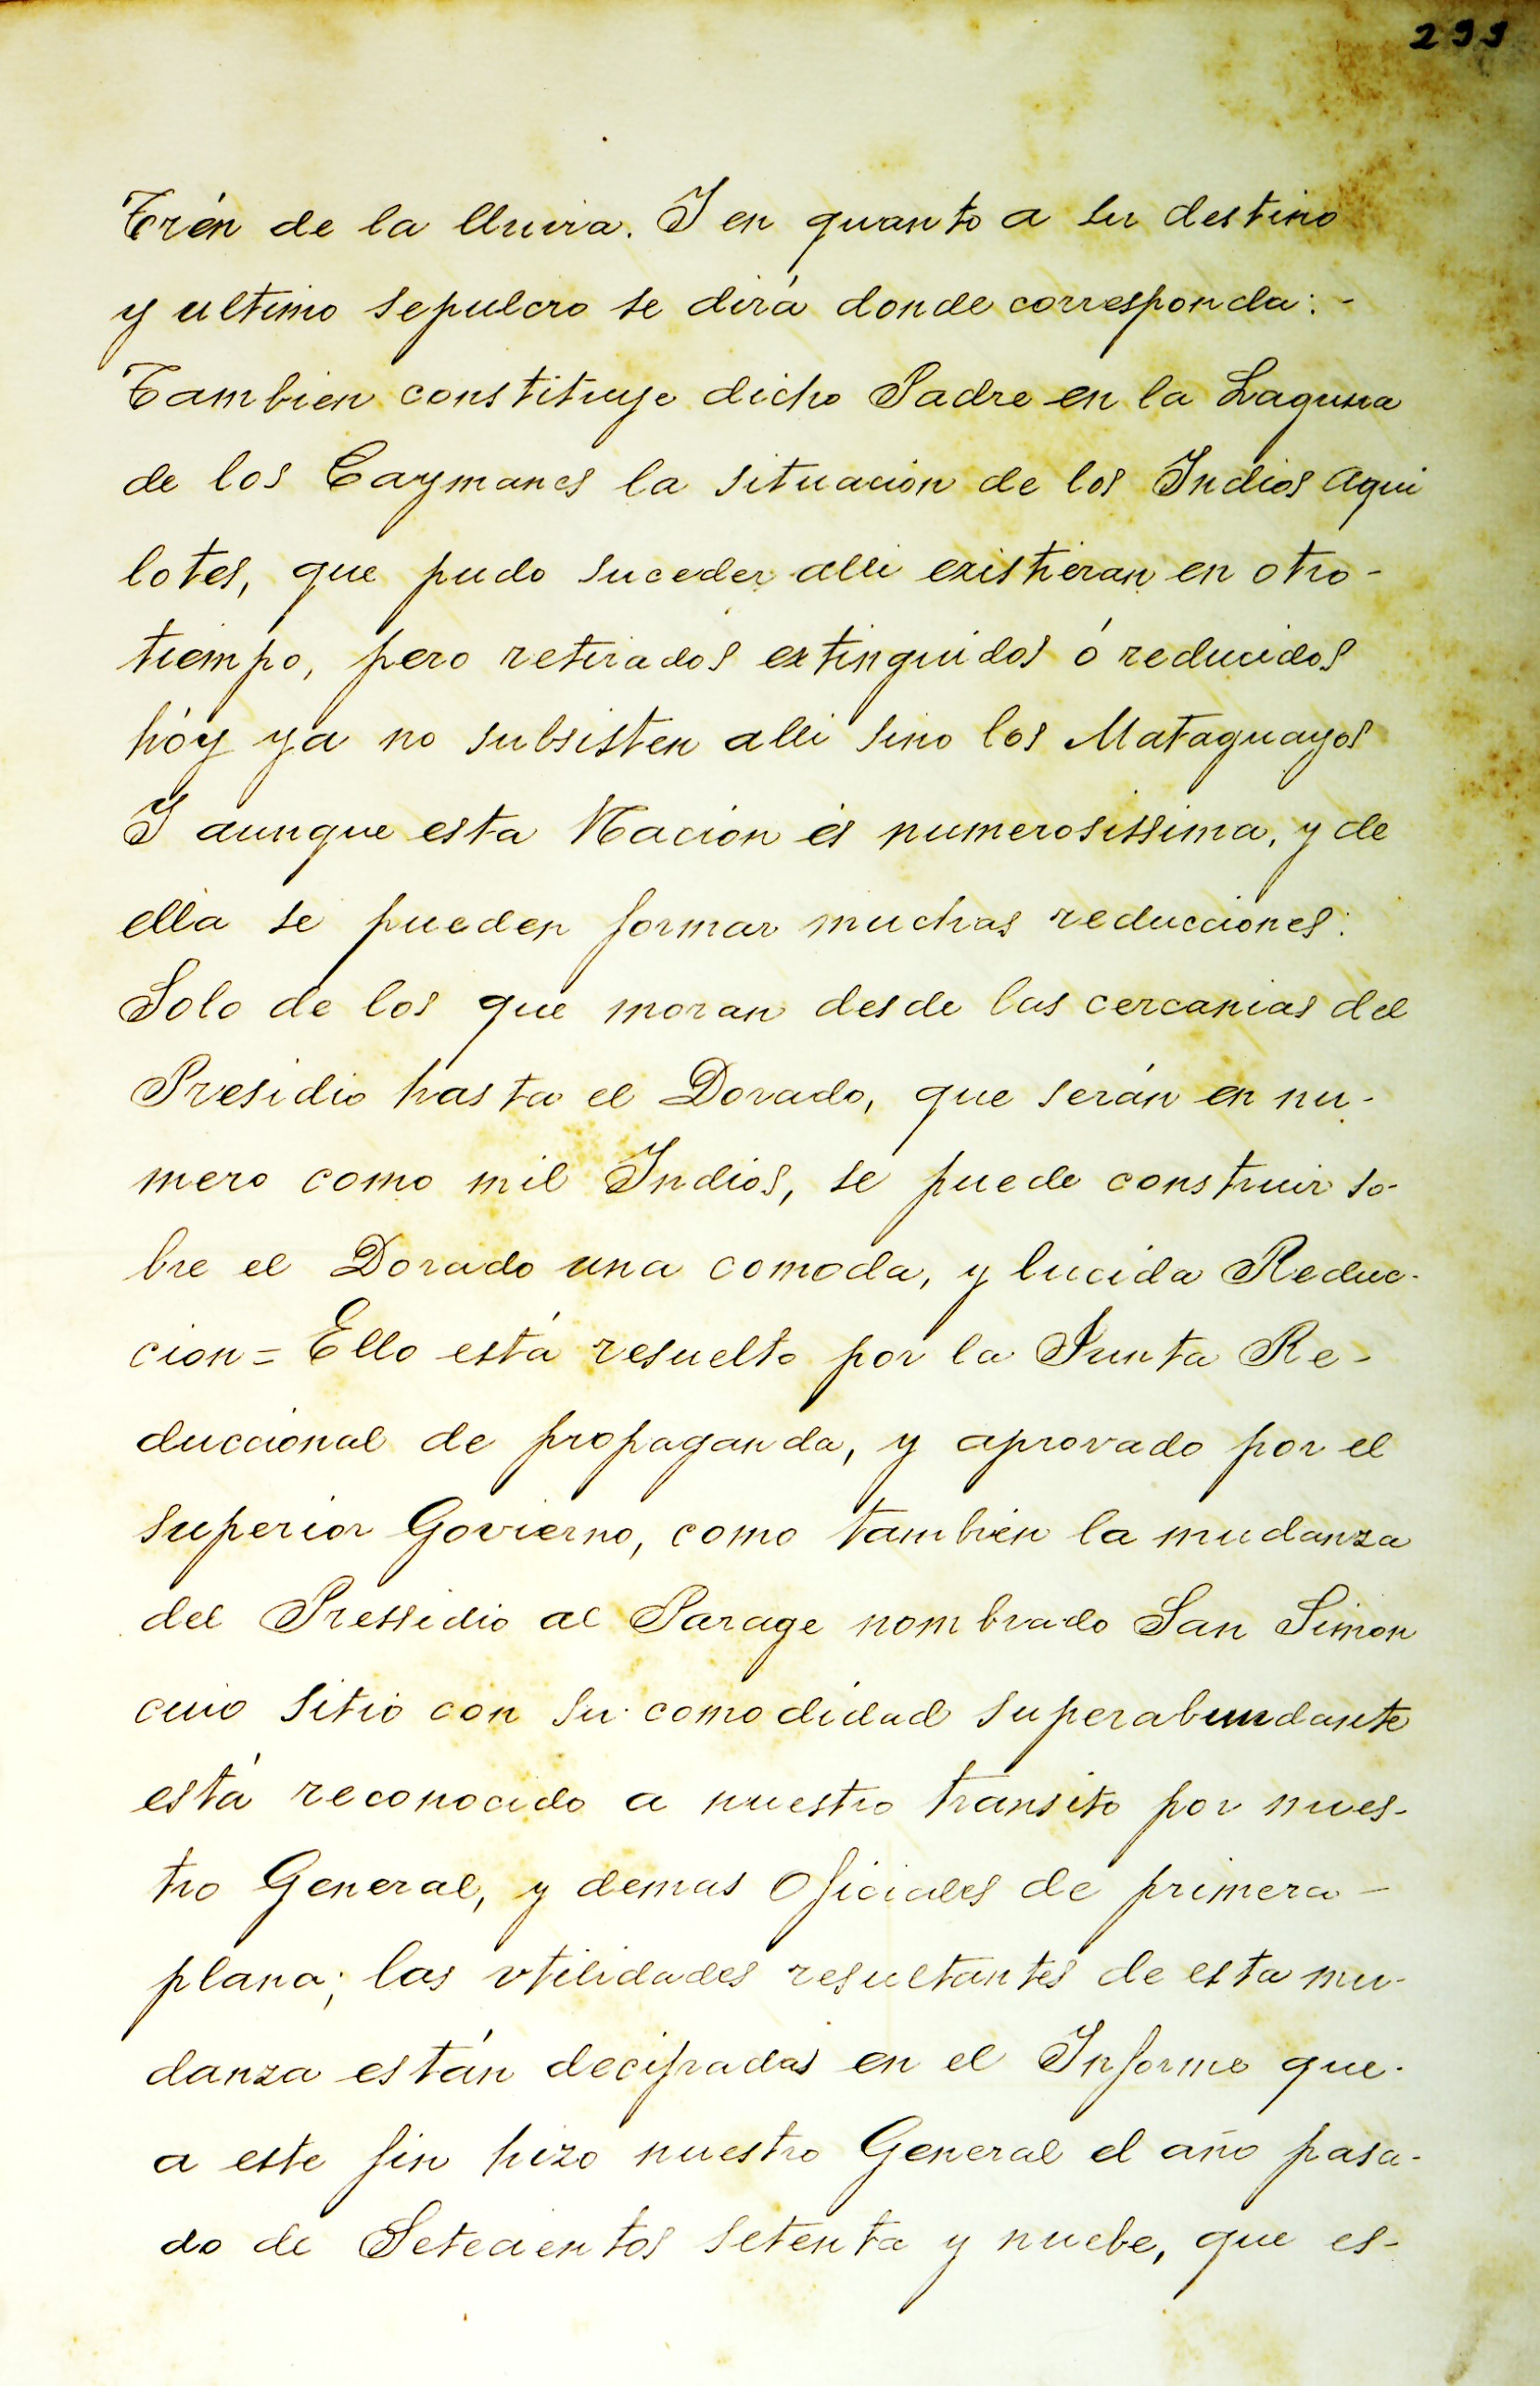 299
Trén de la lluvia. I en quanto a su destino
y ultimo sepulcro se dirá donde corresponda: -
Tambien constituye dicho Padre en la Laguna
de los Caymanes la situacion de los Indios Aqui
lotes, que pudo suceder alli existieran en otro -
tiempo, pero retirados extinguidos ó reducidos
hóy ya no subsisten alli sino los Mataguayos
I aunque esta Nacion és numerosissima, y de
ella se pueden formar muchas reducciones:
Solo de los que moran desde las cercanias del
Presidio hasta el Dorado, que serán en nu-
mero como mil Indios, se puede construir so-
bre el Dorado una comoda, y lucida Reduc-
cion = Ello está resuelto por la Junta Re-
duccional de propaganda, y aprovado por el
superior Govierno, como tambien la mudanza
del Pressidio al Parage nombrado San Simon
cuio sitio con su comodidad superabundante
está reconocido a nuestro transito por nues-
tro General, y demas Oficiales de primera -
plana; las vtilidades resultantes de esta mu-
danza están decifradas en el Informe que-
a este fin hizo nuestro General el año pasa-
do de Setecientos setenta y nuebe, que es-